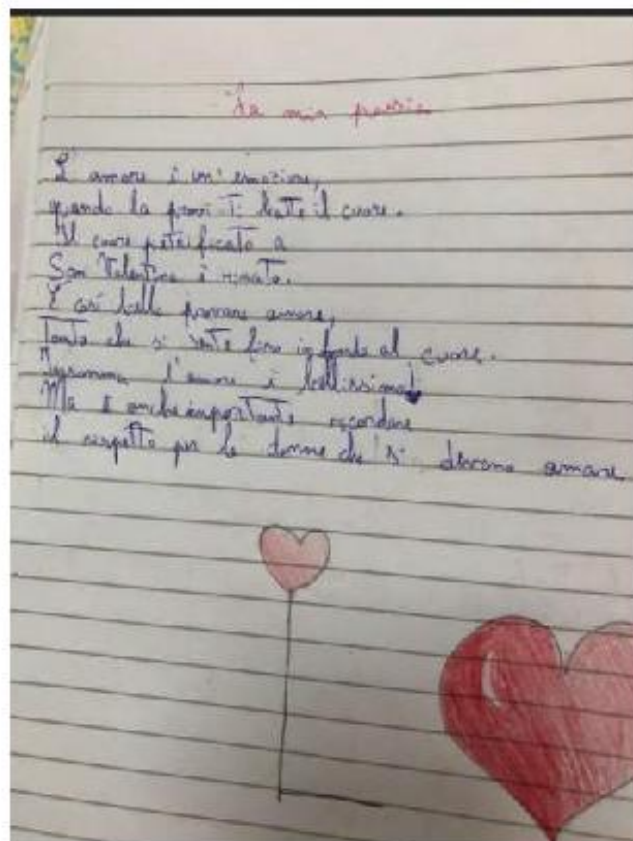 La mia poesia
L'amore è un'emozione,
quando la provi ti batte il cuore.
Il cuore petrificato a
San Valentino è rinato.
È così bello provare amore,
tanto che si sente fino in fondo al cuore.
Insomma l'amore è bellissimo!
Ma è anche importante ricordare
il rispetto per le donne che si devono amare